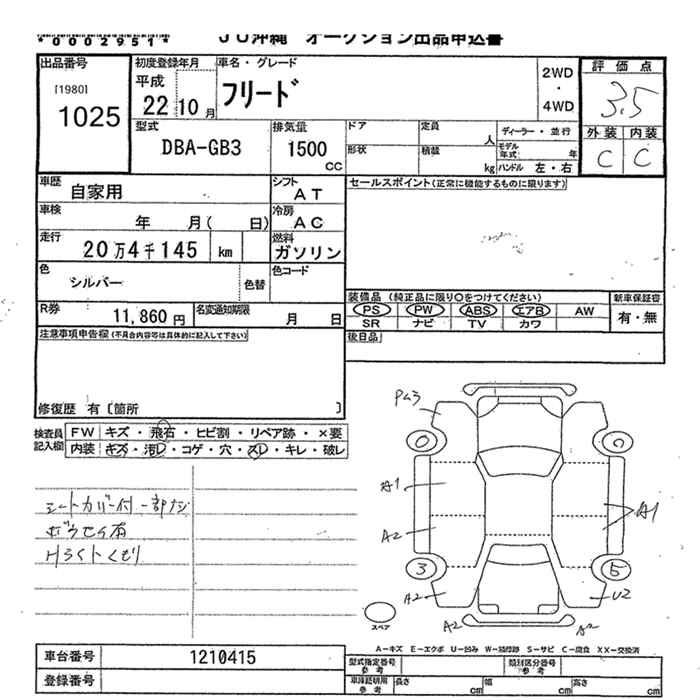 *0002951*
JU沖縄 オークション出品申込書
出品番号
[1980]
1025
初度登録年月
平成
22 10 月
車名・グレード
フリード
2WD
・
4WD
評価点
3.5
外装 内装
C C
型式
DBA-GB3
排気量
1500
CC
ドア
定員
人
形状
積載
kg
ディーラー・並行
モデル年式
年
ハンドル 左・右
車歴
自家用
シフト
AT
車検
年 月( 日)
冷房
AC
走行
20万4千145 km
燃料
ガソリン
色
シルバー
色替
色コード
R券
11,860 円
名変通知期限
月 日
セールスポイント(正常に機能するものに限ります)
装備品 (純正品に限り○をつけてください)
PS PW ABS エアB AW
SR ナビ TV カワ
新車保証書
有・無
後日品
注意事項申告欄(不具合内容等は具体的に記入して下さい)
修復歴 有〔箇所 〕
検査員記入欄
FW キズ・飛石・ヒビ割・リペア跡・×要
内装 キズ・汚レ・コゲ・穴・スレ・キレ・破レ
シートカバー付 一部ナシ
Hライトくもり
A1
A2
A2
A1
U2
A2
A2
0
0
3
5
スペア
A-キズ E-エクボ U-凹み W-補修跡 S-サビ C-腐食 XX-交換済
車台番号
1210415
登録番号
型式指定番号
参考
類別区分番号
参考
車庫証明用
参考
長さ
cm
幅
cm
高さ
cm